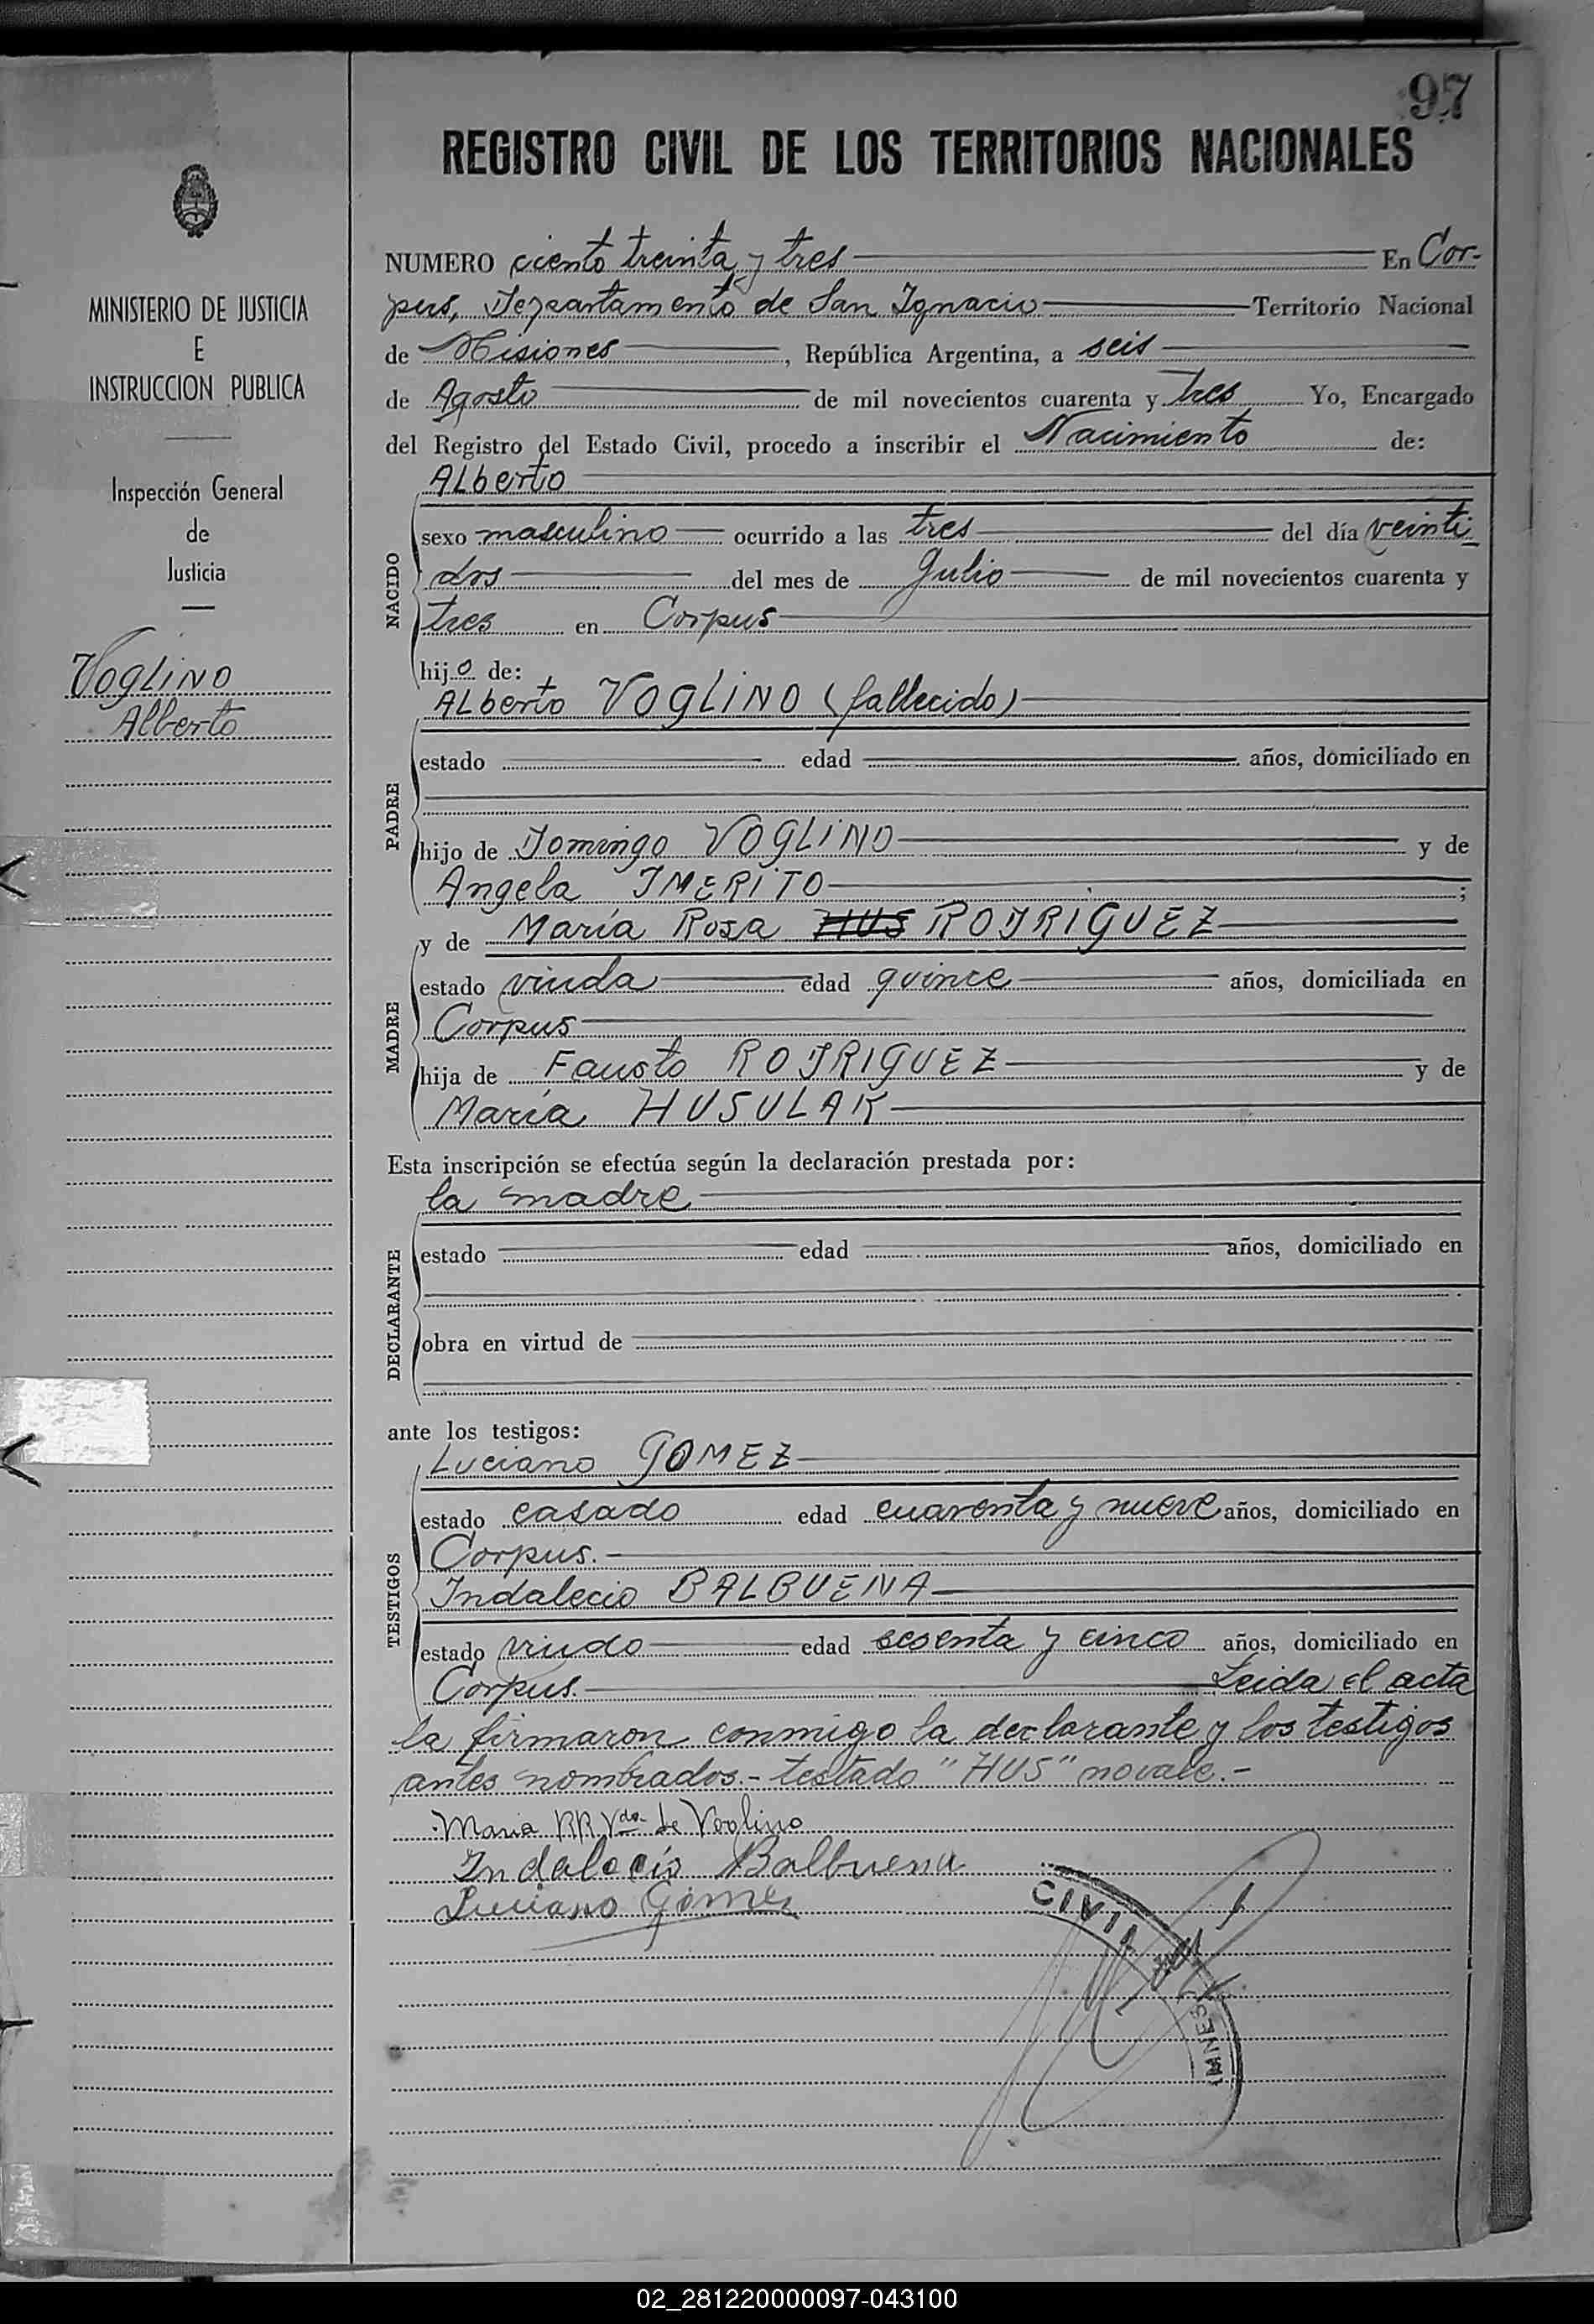 97
REGISTRO CIVIL DE LOS TERRITORIOS NACIONALES
MINISTERIO DE JUSTICIA
E
INSTRUCCION PUBLICA
Inspección General
de
Justicia
VOGLINO
Alberto
NUMERO ciento treinta y tres En Cor-
pus, Departamento de San Ignacio Territorio Nacional
de Misiones, República Argentina, a seis
de Agosto de mil novecientos cuarenta y tres Yo, Encargado
del Registro del Estado Civil, procedo a inscribir el Nacimiento de:
NACIDO
ALberto
sexo masculino ocurrido a las tres del día veinti-
dos del mes de Julio de mil novecientos cuarenta y
tres en Corpus
hijo de:
PADRE
ALberto + VOGLINO (fallecido)
estado edad años, domiciliado en
hijo de Domingo VOGLINO y de
Angela IMERITO ;
MADRE
y de María Rosa HUS RODRIGUEZ
estado viuda edad quince años, domiciliada en
Corpus
hija de Fausto RODRIGUEZ y de
María HUSULAK
Esta inscripción se efectúa según la declaración prestada por:
DECLARANTE
la madre
estado edad años, domiciliado en
obra en virtud de
ante los testigos:
TESTIGOS
Luciano GOMEZ
estado casado edad cuarenta y nueve años, domiciliado en
Corpus.
Indalecio BALBUENA
estado viudo edad sesenta y cinco años, domiciliado en
Corpus. Leida el acta
la firmaron conmigo la declarante y los testigos
antes nombrados.- testado "HUS" no vale.-
Maria RR Vda. de Voglino
Indalecio Balbuena
Luciano Gómez
CIVIL
02_281220000097-043100